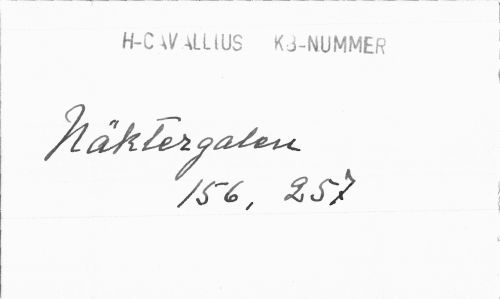 H-CAVALLIUS KB-NUMMER
Näktergalen
156, 257